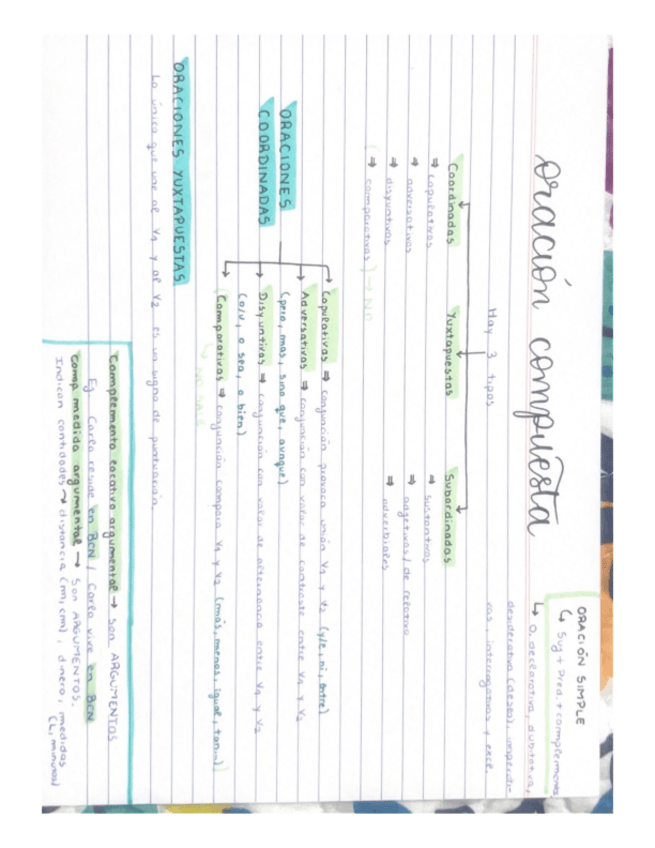 oración compuesta
ORACIÓN SIMPLE
↳ Suj + Pred. + complementos
↳ O. declarativa, dubitativa,
desiderativa (deseo), imperati-
vas, interrogativas y excl.
Hay 3 tipos
Coordinadas
⇒ copulativas
⇒ adversativas
⇒ disyuntivas
⇒ comparativas) → NO
Yuxtapuestas
Subordinadas
⇒ sustantivas
⇒ adjetivas / de relativo
⇒ adverbiales
ORACIONES
COORDINADAS
Copulativas ⇒ conjunción provoca unión V1 y V2 (y/e, ni, entre)
Adversativas ⇒ conjunción con valor de contraste entre V1 y V2
(pero, mas, sino que, aunque)
Disyuntivas ⇒ conjunción con valor de alternancia entre V1 y V2
(o/u, o sea, o bien)
(Comparativas ⇒ conjunción compara V1 y V2 (más, menos, igual, tan...)
↳ NO SALE
ORACIONES YUXTAPUESTAS
Lo único que une al V1 y al V2 es un signo de puntuación.
Complemento locativo argumental → son ARGUMENTOS
Ej Carla reside en BCN / Carla vive en BCN
Comp medida argumental → Son ARGUMENTOS.
Indican cantidades → distancia (m, cm), dinero, medidas
(L, minutos)